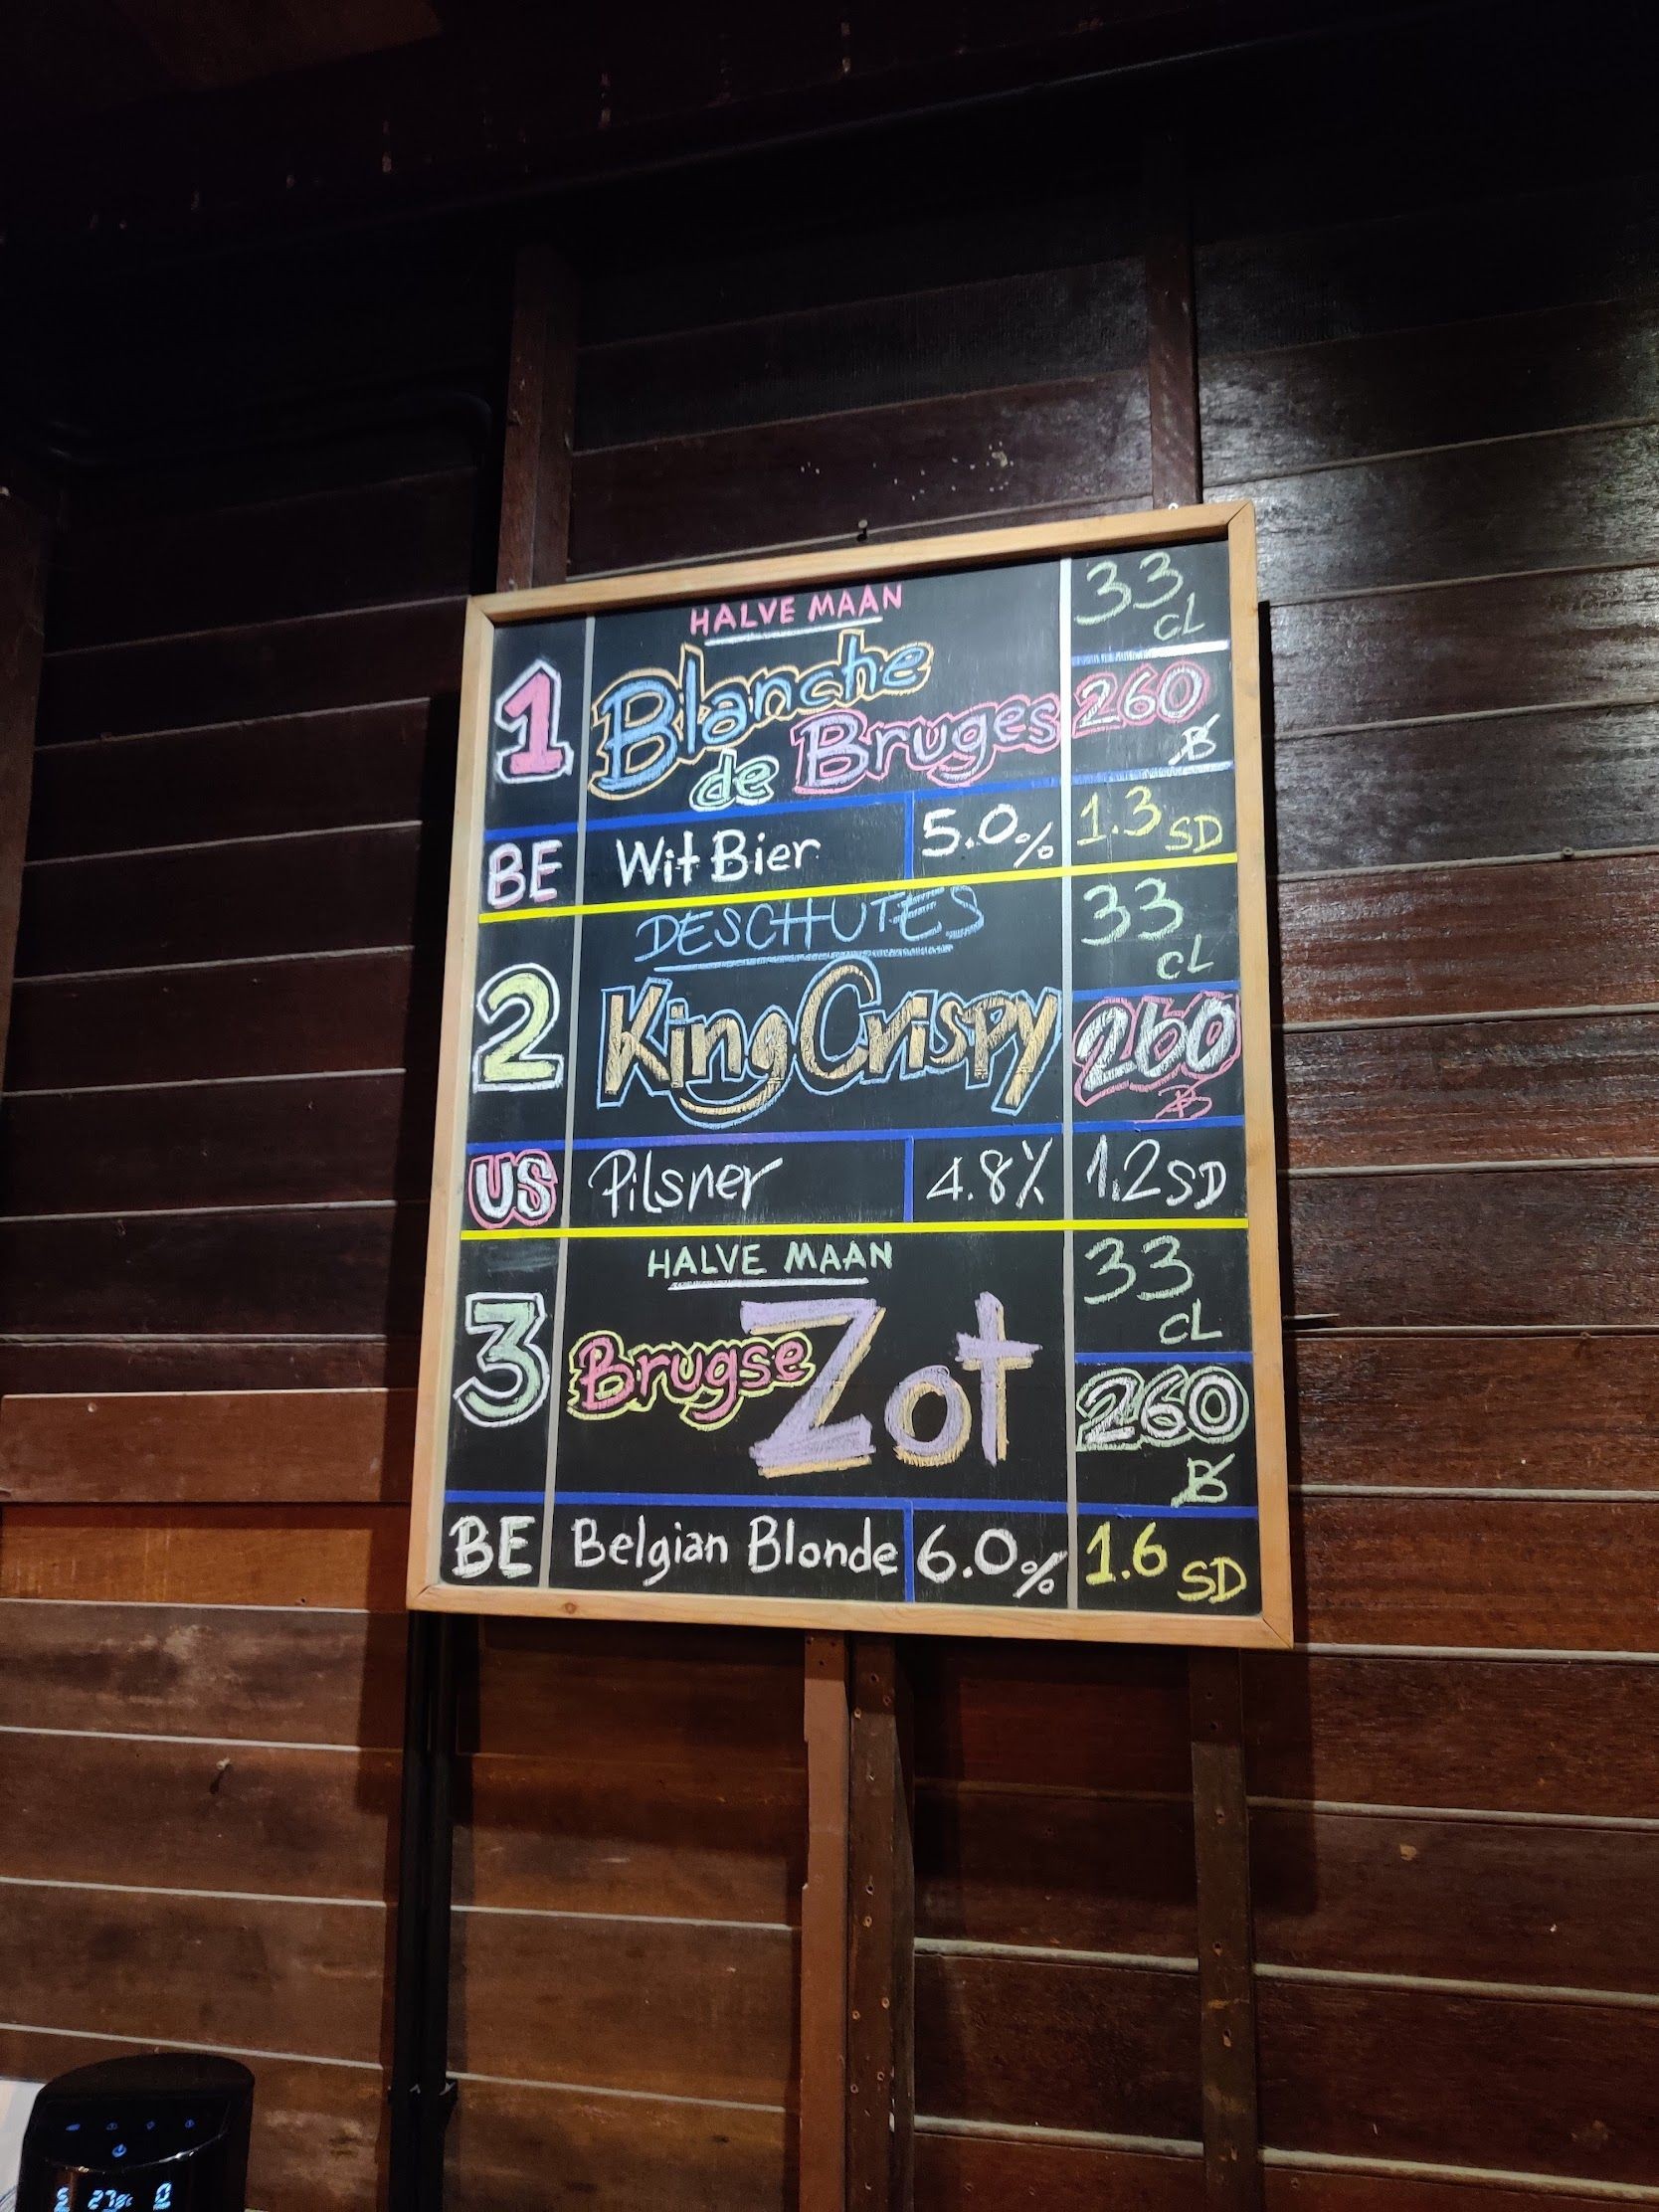 HALVE MAAN
33 CL
1
Blanche
de Bruges
260 ฿
BE
Wit Bier
5.0%
1.3 SD
DESCHUTES
33 CL
2
King Crispy
260 ฿
US
Pilsner
4.8%
1.2 SD
HALVE MAAN
33 CL
3
Brugse Zot
260 ฿
BE
Belgian Blonde
6.0%
1.6 SD